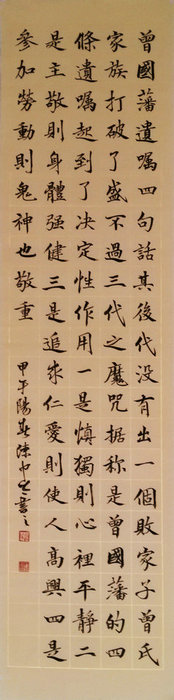 曾國藩遺嘱四句話其後代没有出一個敗家子曾氏
家族打破了盛不過三代之魔咒据称是曾國藩的四
條遺嘱起到了决定性作用一是慎獨則心裡平靜二
是主敬則身體强健三是追求仁愛則使人高興四是
參加勞動則鬼神也敬重
甲午陽春陳中書之